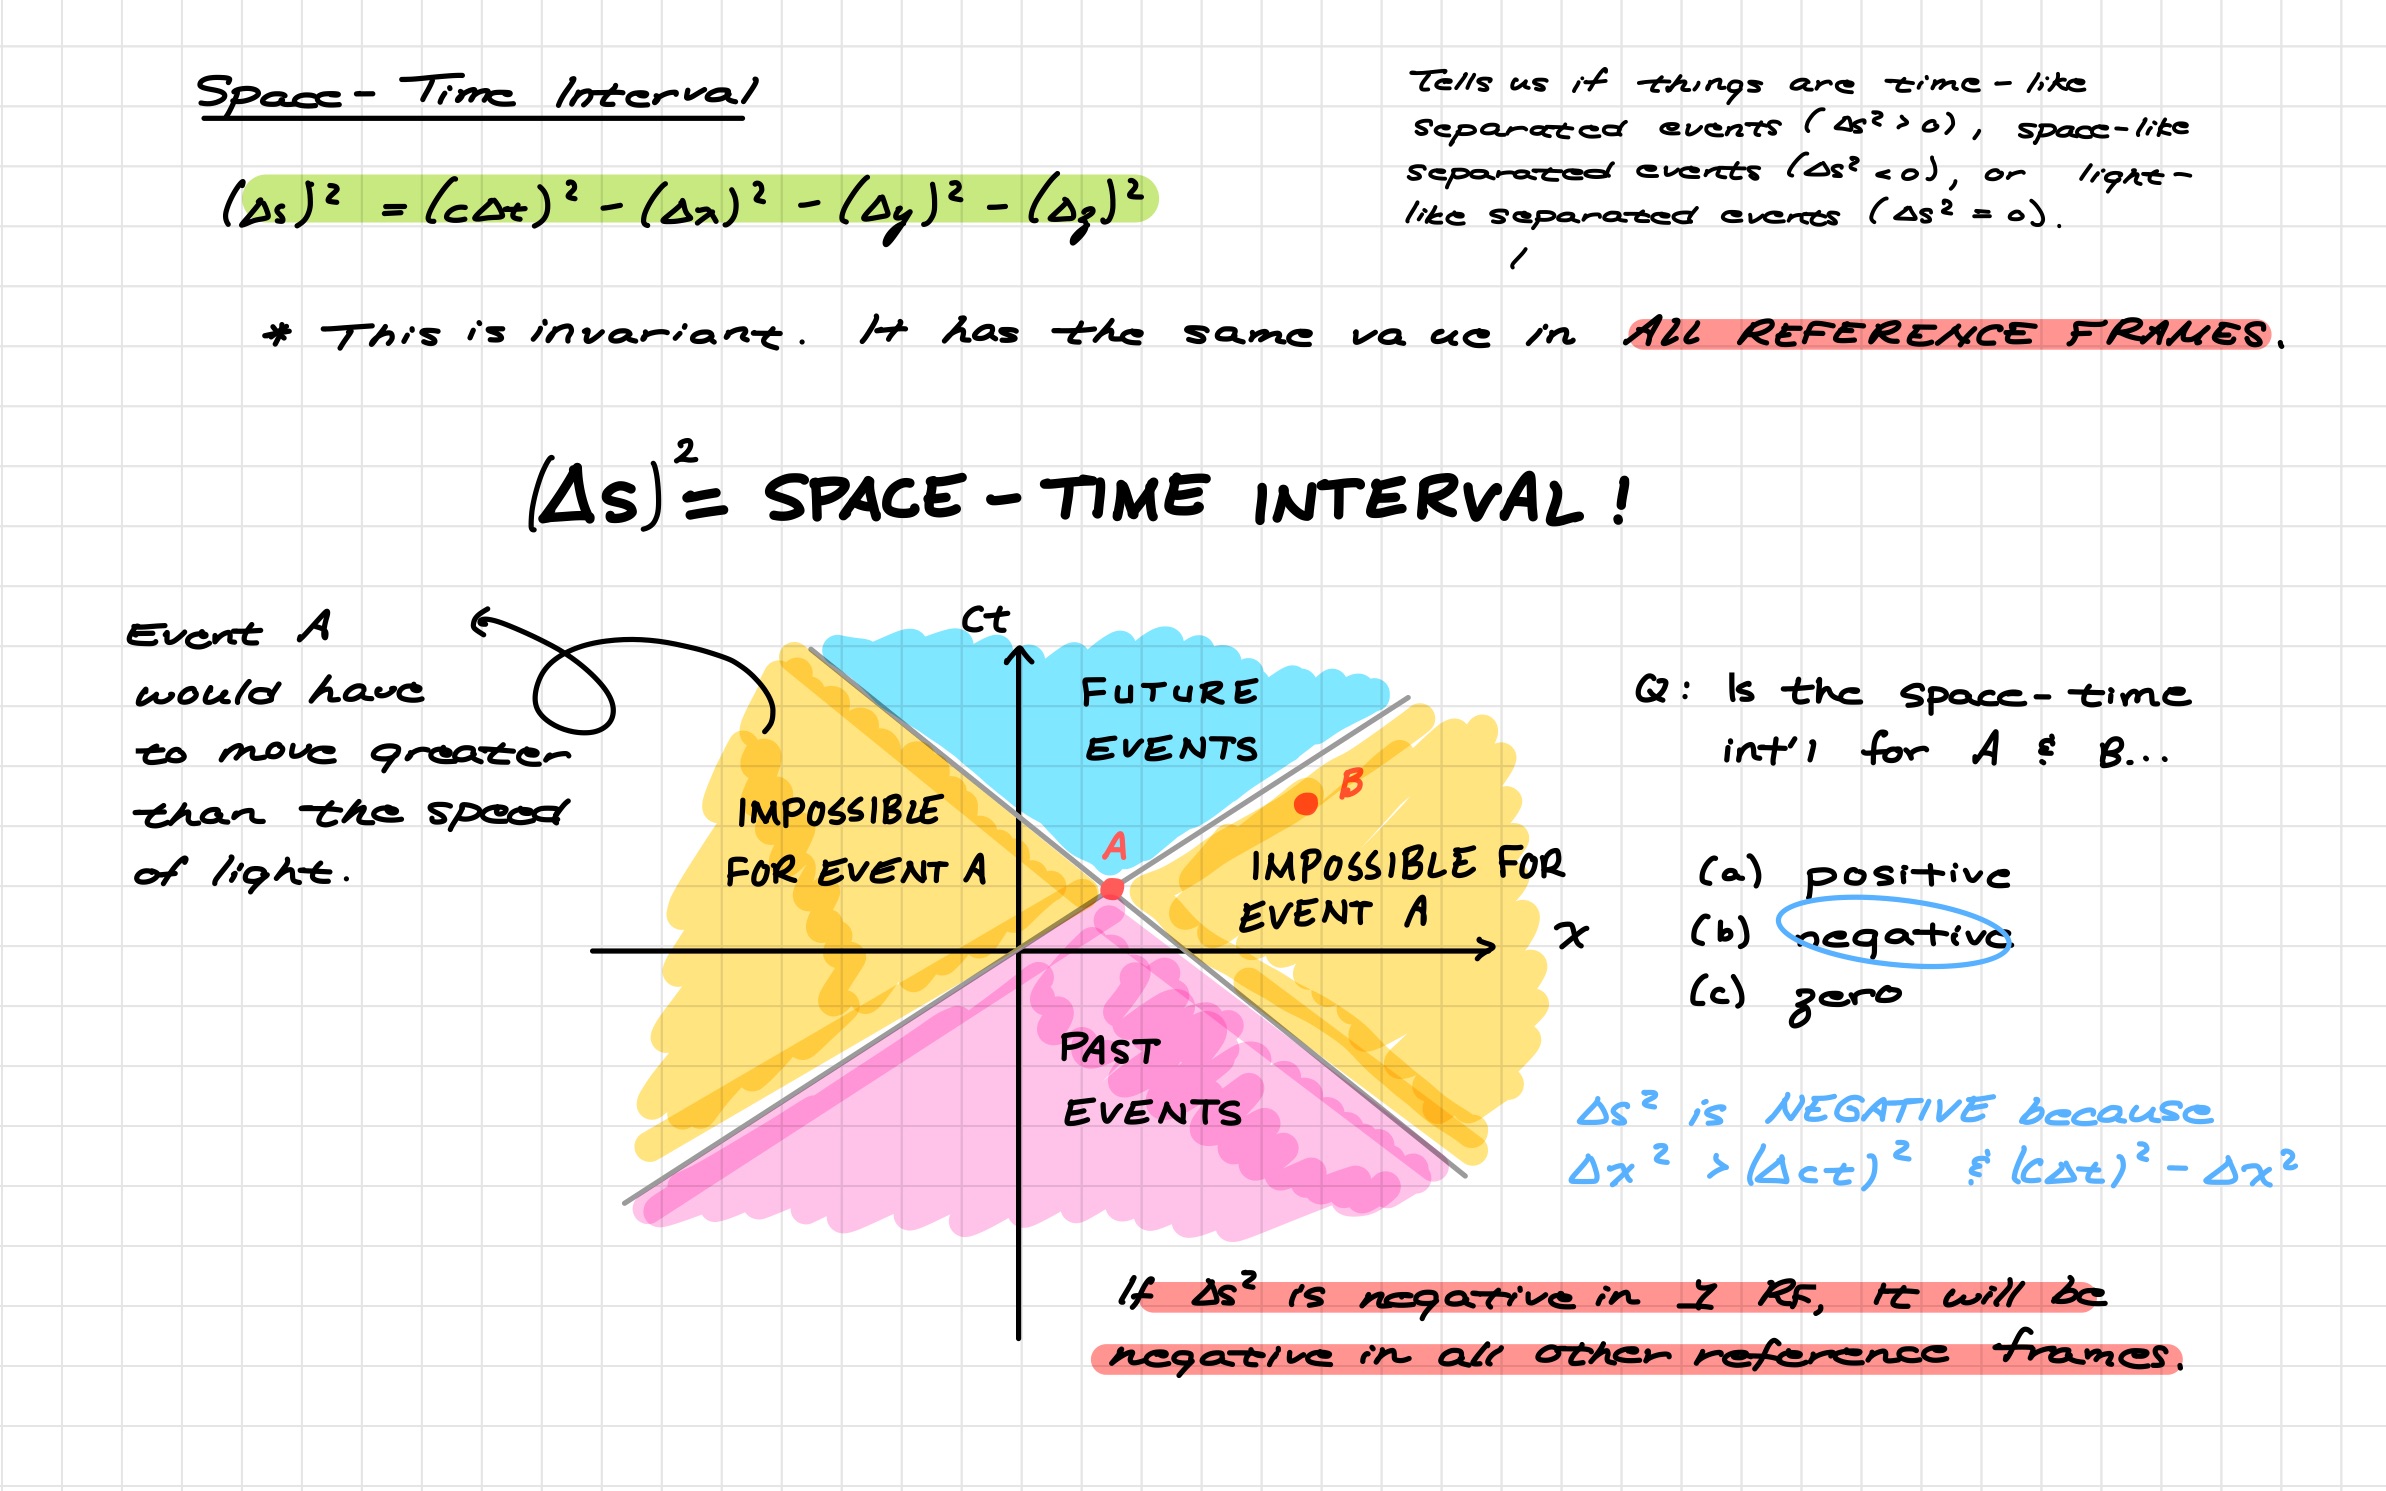 Space-Time Interval
(Δs)² = (cΔt)² - (Δx)² - (Δy)² - (Δz)²
Tells us if things are time-like
separated events (Δs² > 0), space-like
separated events (Δs² < 0), or light-
like separated events (Δs² = 0).
* This is invariant. It has the same va ue in ALL REFERENCE FRAMES.
(Δs)² = SPACE-TIME INTERVAL!
Event A
would have
to move greater
than the speed
of light.
ct
FUTURE
EVENTS
IMPOSSIBLE
FOR EVENT A
A
B
IMPOSSIBLE FOR
EVENT A
x
PAST
EVENTS
Q: Is the space-time
int'l for A & B...
(a) positive
(b) negative
(c) zero
Δs² is NEGATIVE because
Δx² > (Δct)² & (cΔt)² - Δx²
If Δs² is negative in 1 RF, it will be
negative in all other reference frames.